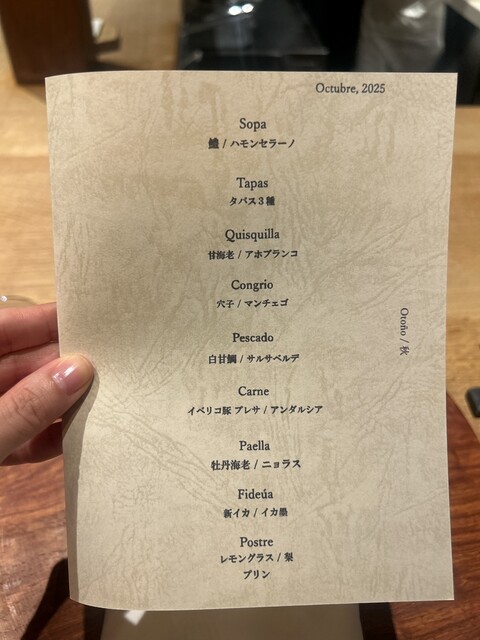 Octubre, 2025
Sopa
鱧 / ハモンセラーノ
Tapas
タパス3種
Quisquilla
甘海老 / アホブランコ
Congrio
穴子 / マンチェゴ
Pescado
白甘鯛 / サルサベルデ
Carne
イベリコ豚 プレサ / アンダルシア
Paella
牡丹海老 / ニョラス
Fideúa
新イカ / イカ墨
Postre
レモングラス / 梨
プリン
Otoño / 秋